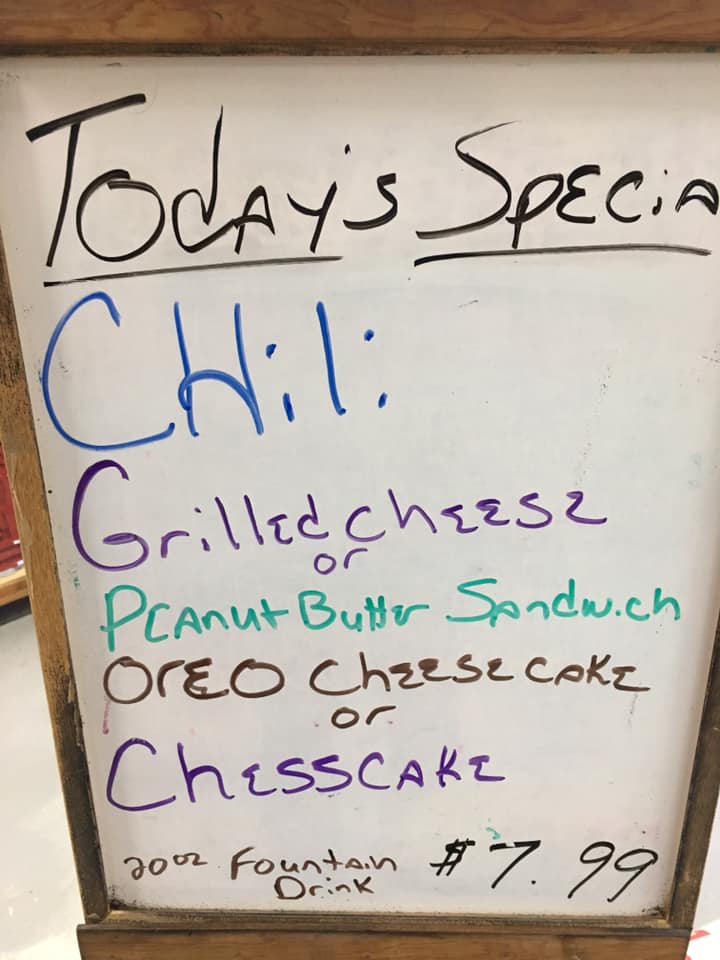 Today's Specia
CHili
Grilled cheese
or
Peanut Butter Sandwich
OrEO Cheesecake
or
Chesscake
20oz Fountain
Drink
$7.99